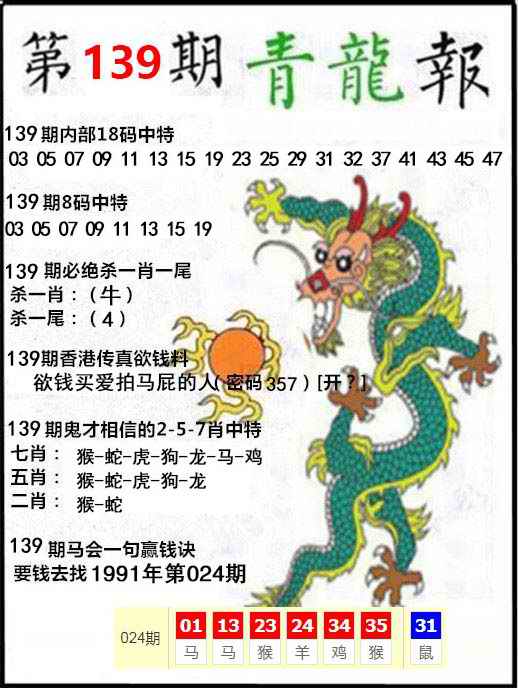 第139期青龍報
139期内部18码中特
03 05 07 09 11 13 15 19 23 25 29 31 32 37 41 43 45 47
139期8码中特
03 05 07 09 11 13 15 19
139期必绝杀一肖一尾
杀一肖：（牛）
杀一尾：（4）
139期香港传真欲钱料
欲钱买爱拍马屁的人(密码357)[开？]
139期鬼才相信的2-5-7肖中特
七肖： 猴-蛇-虎-狗-龙-马-鸡
五肖： 猴-蛇-虎-狗-龙
二肖： 猴-蛇
139期马会一句赢钱诀
要钱去找1991年第024期
024期 01 13 23 24 34 35 31
马 马 猴 羊 鸡 猴 鼠